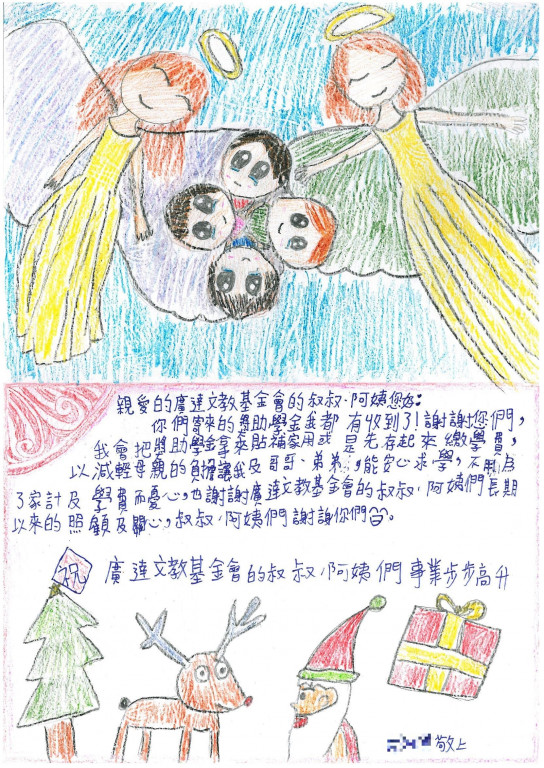 親愛的廣達文教基金會的叔叔、阿姨您好:
你們寄來的獎助學金我都有收到了!謝謝您們,
我會把獎助學金拿來貼補家用或是先存起來繳學費,
以減輕母親的負擔讓我及哥哥、弟弟,能安心求學,不用為
了家計及學費而憂心,也謝謝廣達文教基金會的叔叔、阿姨們長期
以來的照顧及關心,叔叔、阿姨們謝謝你們
祝
廣達文教基金會的叔叔、阿姨們事業步步高升
敬上